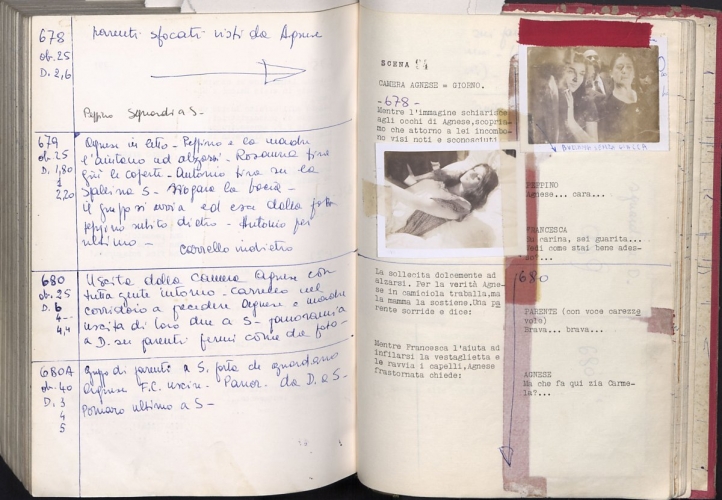 678
ob. 25
D. 2,6
parenti sfocati visti da Agnese
Peppino Sguardi a S-
679
ob. 25
D. 1,80
2,20
Agnese in letto - Peppino e la madre
l'aiutano ad alzarsi - Rosaura tira
giù le coperte - Antonio tira su la
S -
il gruppo si avvia ed esce dalla porta
peppino subito dietro - Antonio per
ultimo -
Carrello indietro
680
ob. 25
D. 6
4--
4,4
Uscita dalla Camera Agnese con
tutta gente intorno - Carrello nel
corridoio a precedere Agnese e madre
uscita di loro due a S - panoramica
a D. su parenti fermi come da foto -
680A
ob. 40
D. 3
4
5
gruppo di parenti a S. porta che guardano
Agnese F.C. uscire - Panor. da D. a S -
ultimo a S -
SCENA
CAMERA AGNESE = GIORNO.
- 678 -
Mentre l'immagine schiarisce
agli occhi di Agnese, scopria-
mo che attorno a lei incombo-
no visi noti e sconosciuti
SENZA GIACCA
PEPPINO
Agnese... cara...
FRANCESCA
carina, sei guarita...
Vedi come stai bene ades-
so?...
La sollecita dolcemente ad
alzarsi. Per la verità Agne-
se in camiciola traballa, ma
la mamma la sostiene. Una pa
rente sorride e dice:
680
PARENTE (con voce carezze
vole)
Brava... brava...
Mentre Francesca l'aiuta ad
infilarsi la vestaglietta e
le ravvia i capelli, Agnese
frastornata chiede:
AGNESE
Ma che fa qui zia Carme-
la?...